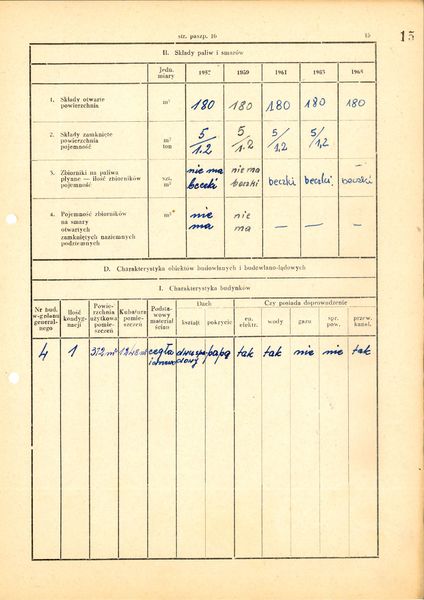 str. paszp. 16 15 15
B. Składy paliw i smarów
Jedn. miary 1957 1959 1961 1963 1965
1. Składy otwarte powierzchnia m² 180 180 180 180 180
2. Składy zamknięte
powierzchnia m² 5 5 5 5
pojemność ton 1.2 1.2 1,2 1,2
3. Zbiorniki na paliwa nie ma nie ma —
płynne — ilość zbiorników szt. beczki beczki beczki beczki beczki
pojemność m³
4. Pojemność zbiorników m³ nie nie
na smary ma ma — — —
otwartych
zamkniętych naziemnych
podziemnych
D. Charakterystyka obiektów budowlanych i budowlano-lądowych
I. Charakterystyka budynków
Nr bud. w-g planu generalnego
Ilość kondygnacji
Powierzchnia użytkowa pomieszczeń
Kubatura pomieszczeń
Podstawowy materiał ścian
Dach
kształt pokrycie
Czy posiada doprowadzenie
en. elektr. wody gazu spr. pow. przew. kanal.
4 1 312 m² 1248 m³ cegła dwuspadowy papą tak tak nie nie tak